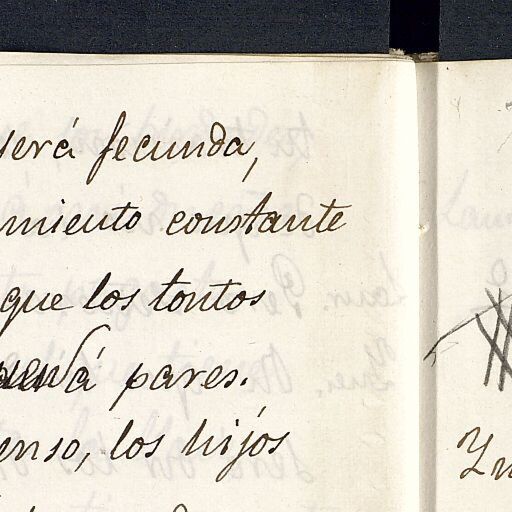 será fecunda,
miento constante
que los tontos
á pares.
enso, los hijos